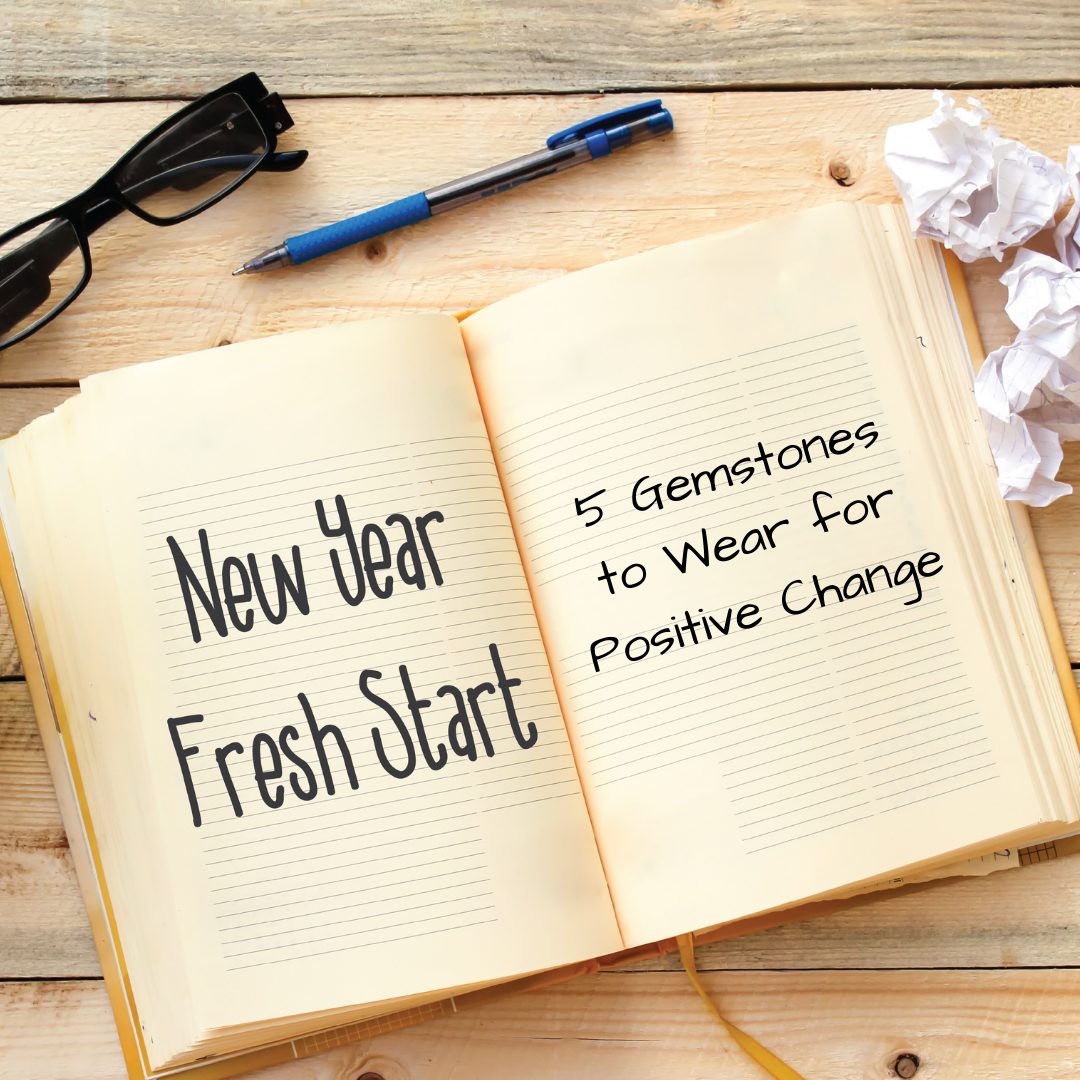 New Year
Fresh Start
5 Gemstones
to Wear for
Positive Change